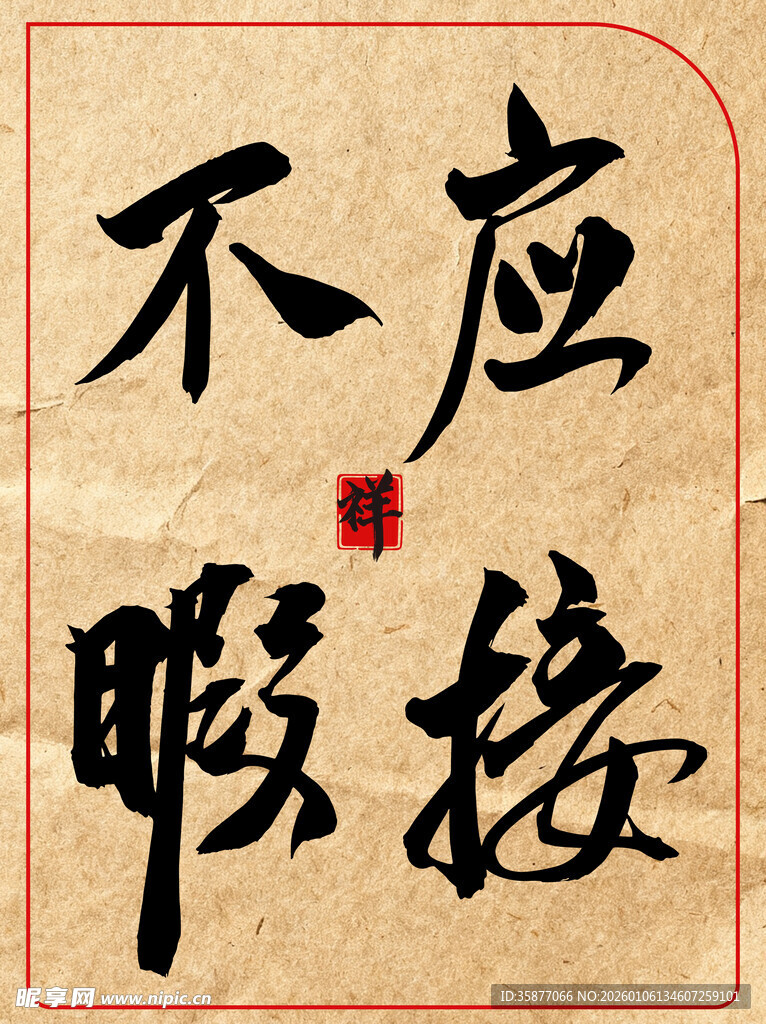 应接
不暇
祥
昵享网 www.nipic.cn
ID:35877066 NO:20260106134607259101